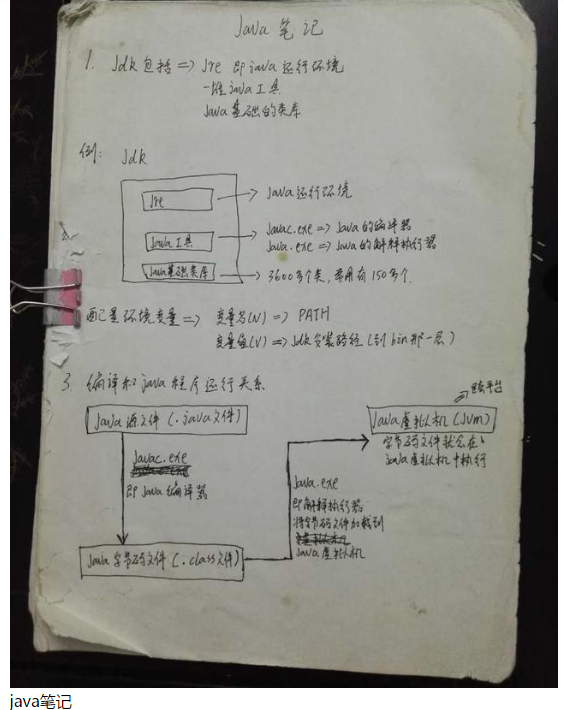 Java 笔记
1. Jdk 包括 => Jre 即java运行环境
一堆java工具
Java基础的类库
例: Jdk
Jre
Java运行环境
Java工具
Javac.exe => Java的编译器
Java.exe => Java的解释执行器
Java基础类库
3600多个类,常用有150多个.
配置环境变量 => 变量名(N) => PATH
变量值(V) => Jdk安装路径(到bin那一层)
3. 编译和java程序运行关系
跨平台
Java源文件(.java文件)
Java虚拟机(Jvm)
字节码文件就会在
java虚拟机中执行
Javac.exe
即Java编译器
Java.exe
即解释执行器
将字节码文件加载到
Java虚拟机
Java字节码文件(.class文件)
java笔记